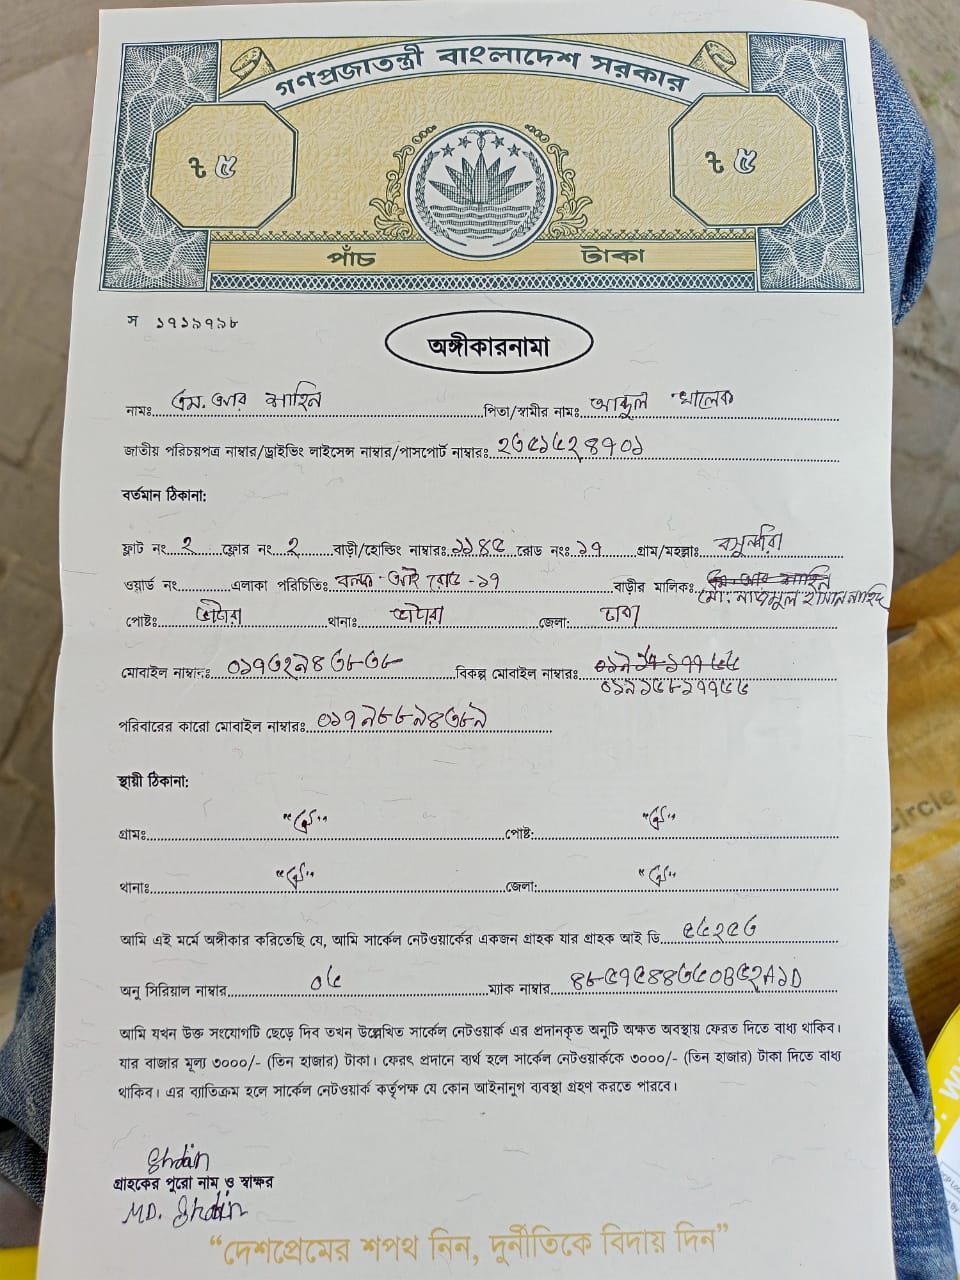 গণপ্রজাতন্ত্রী বাংলাদেশ সরকার
৳ ৫ ৳ ৫
পাঁচ টাকা
স ১৭১৯৭৯৮
অঙ্গীকারনামা
নামঃ এম. আর শাহিন পিতা/স্বামীর নামঃ আব্দুল খালেক
জাতীয় পরিচয়পত্র নাম্বার/ড্রাইভিং লাইসেন্স নাম্বার/পাসপোর্ট নাম্বারঃ
বর্তমান ঠিকানা:
ফ্লাট নং ২ ফ্লোর নং ২ বাড়ী/হোল্ডিং নাম্বারঃ ১১৪৫ রোড নংঃ ১৭ গ্রাম/মহল্লাঃ বসুন্ধরা
ওয়ার্ড নং এলাকা পরিচিতিঃ ব্লক- আই রোড -১৭ বাড়ীর মালিকঃ
মো: নাজমুল হাসান নাহিদ
পোষ্টঃ ভাটারা থানাঃ ভাটারা জেলা: ঢাকা
মোবাইল নাম্বারঃ বিকল্প মোবাইল নাম্বারঃ
পরিবারের কারো মোবাইল নাম্বারঃ
স্থায়ী ঠিকানা:
গ্রামঃ "ঐ" পোষ্ট: "ঐ"
থানাঃ "ঐ" জেলা: "ঐ"
আমি এই মর্মে অঙ্গীকার করিতেছি যে, আমি সার্কেল নেটওয়ার্কের একজন গ্রাহক যার গ্রাহক আই ডি
অনু সিরিয়াল নাম্বার ০৬ ম্যাক নাম্বার
আমি যখন উক্ত সংযোগটি ছেড়ে দিব তখন উল্লেখিত সার্কেল নেটওয়ার্ক এর প্রদানকৃত অনুটি অক্ষত অবস্থায় ফেরত দিতে বাধ্য থাকিব।
যার বাজার মূল্য ৩০০০/- (তিন হাজার) টাকা। ফেরৎ প্রদানে ব্যর্থ হলে সার্কেল নেটওয়ার্ককে ৩০০০/- (তিন হাজার) টাকা দিতে বাধ্য
থাকিব। এর ব্যাতিক্রম হলে সার্কেল নেটওয়ার্ক কর্তৃপক্ষ যে কোন আইনানুগ ব্যবস্থা গ্রহণ করতে পারবে।
Shdain
গ্রাহকের পুরো নাম ও স্বাক্ষর
MD. Shdain
"দেশপ্রেমের শপথ নিন, দুর্নীতিকে বিদায় দিন"
Circle